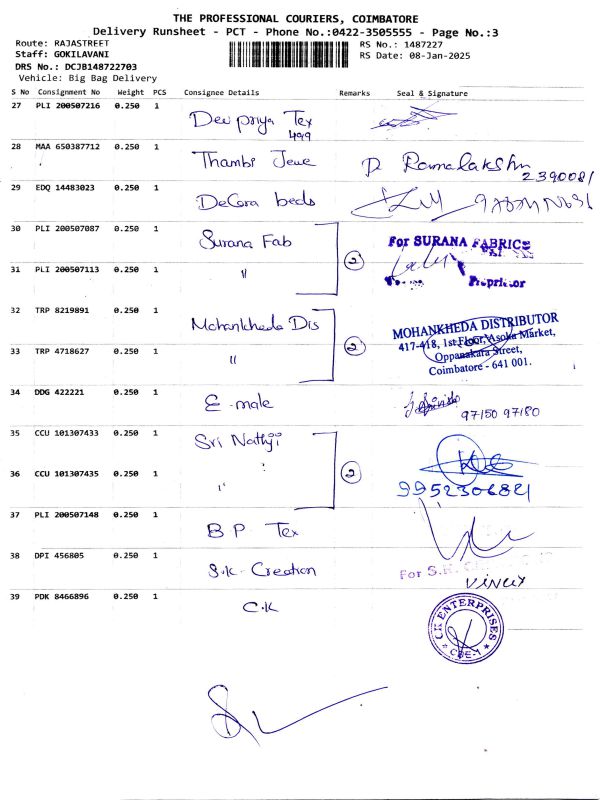 THE PROFESSIONAL COURIERS, COIMBATORE
Delivery Runsheet - PCT - Phone No.:0422-3505555 - Page No.:3
Route: RAJASTREET
RS No.: 1487227
Staff: GOKILAVANI
RS Date: 08-Jan-2025
DRS No.: DCJB148722703
Vehicle: Big Bag Delivery
S No Consignment No Weight PCS Consignee Details Remarks Seal & Signature
27 PLI 200507216 0.250 1 Devpriya Tex
499
28 MAA 650387712 0.250 1 Thambi Jewe P Ramalakshm
2390081
29 EDQ 14483023 0.250 1 DeCora beds
30 PLI 200507087 0.250 1 Surana Fab For SURANA FABRICS
31 PLI 200507113 0.250 1 " 2 Proprietor
32 TRP 8219891 0.250 1 Mohankheda Dis MOHANKHEDA DISTRIBUTOR
417-418, 1st Floor, Asoka Market,
33 TRP 4718627 0.250 1 " 2 Oppanakara Street,
Coimbatore - 641 001.
34 DDG 422221 0.250 1 E-male
97150 97180
35 CCU 101307433 0.250 1 Sri Nathji
36 CCU 101307435 0.250 1 " 2 9952306821
37 PLI 200507148 0.250 1 B P Tex
38 DPI 456805 0.250 1 S.K. Creation For S.K.
Vincy
39 PDK 8466896 0.250 1 C.K
CK ENTERPRISES
CBE-1